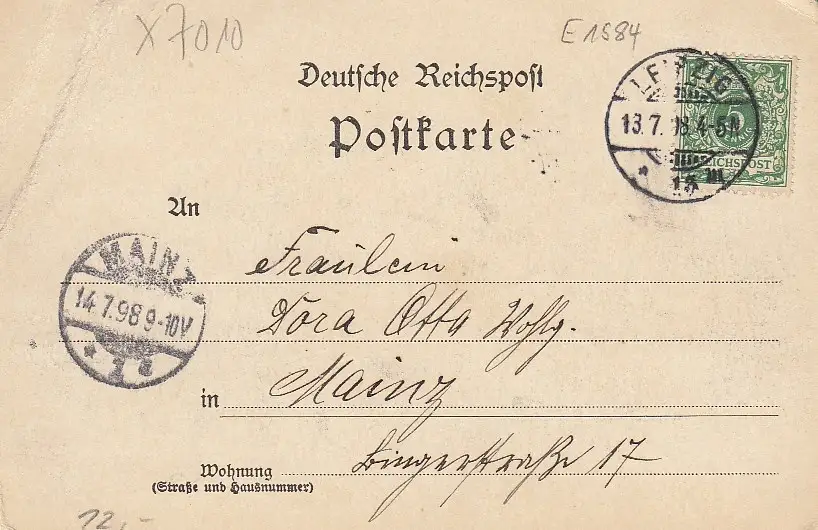 X7010
E1584
Deutsche Reichspost
Postkarte
LEIPZIG
13.7.98.4-5N
13
REICHSPOST
An
MAINZ
14.7.98 9-10V
* 1 a
Fräulein
Dora Otto Wohlg.
in Mainz
Wohnung
(Straße und Hausnummer)
Bingerstraße 17
12,-